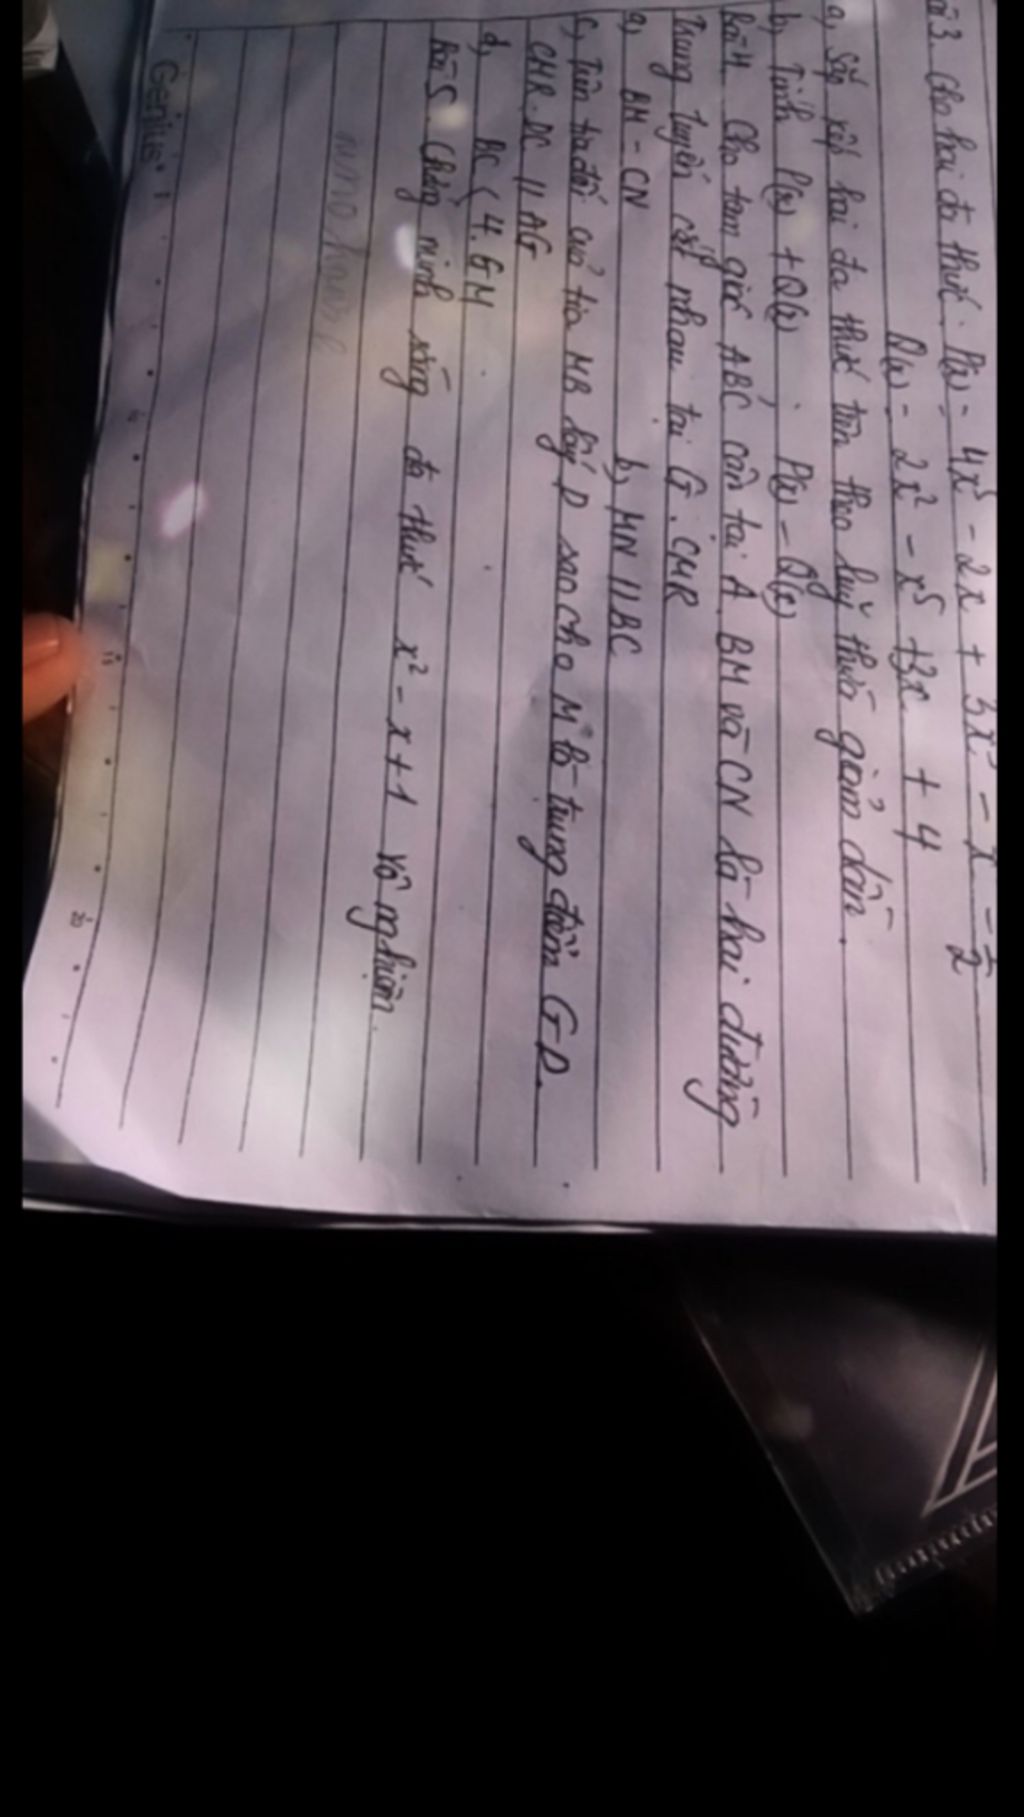 3. Cho hai đa thức: P(x) = 4x⁵ - 2x + 3x² - x - 1/2
Q(x) = 2x² - x⁵ + 3x + 4
a, Sắp xếp hai đa thức trên theo luỹ thừa giảm dần.
b, Tính P(x) + Q(x) ; P(x) - Q(x)
Bài 4. Cho tam giác ABC cân tại A. BM và CN là hai đường
Trung tuyến cắt nhau tại G. CMR
a, BM = CN b, MN // BC
c, Trên tia đối của tia MB lấy D sao cho M là trung điểm GD.
CMR. DC // AG
d, BC < 4.GM
Bài 5. Chứng minh rằng đa thức x² - x + 1 vô nghiệm.
Genius
15
20